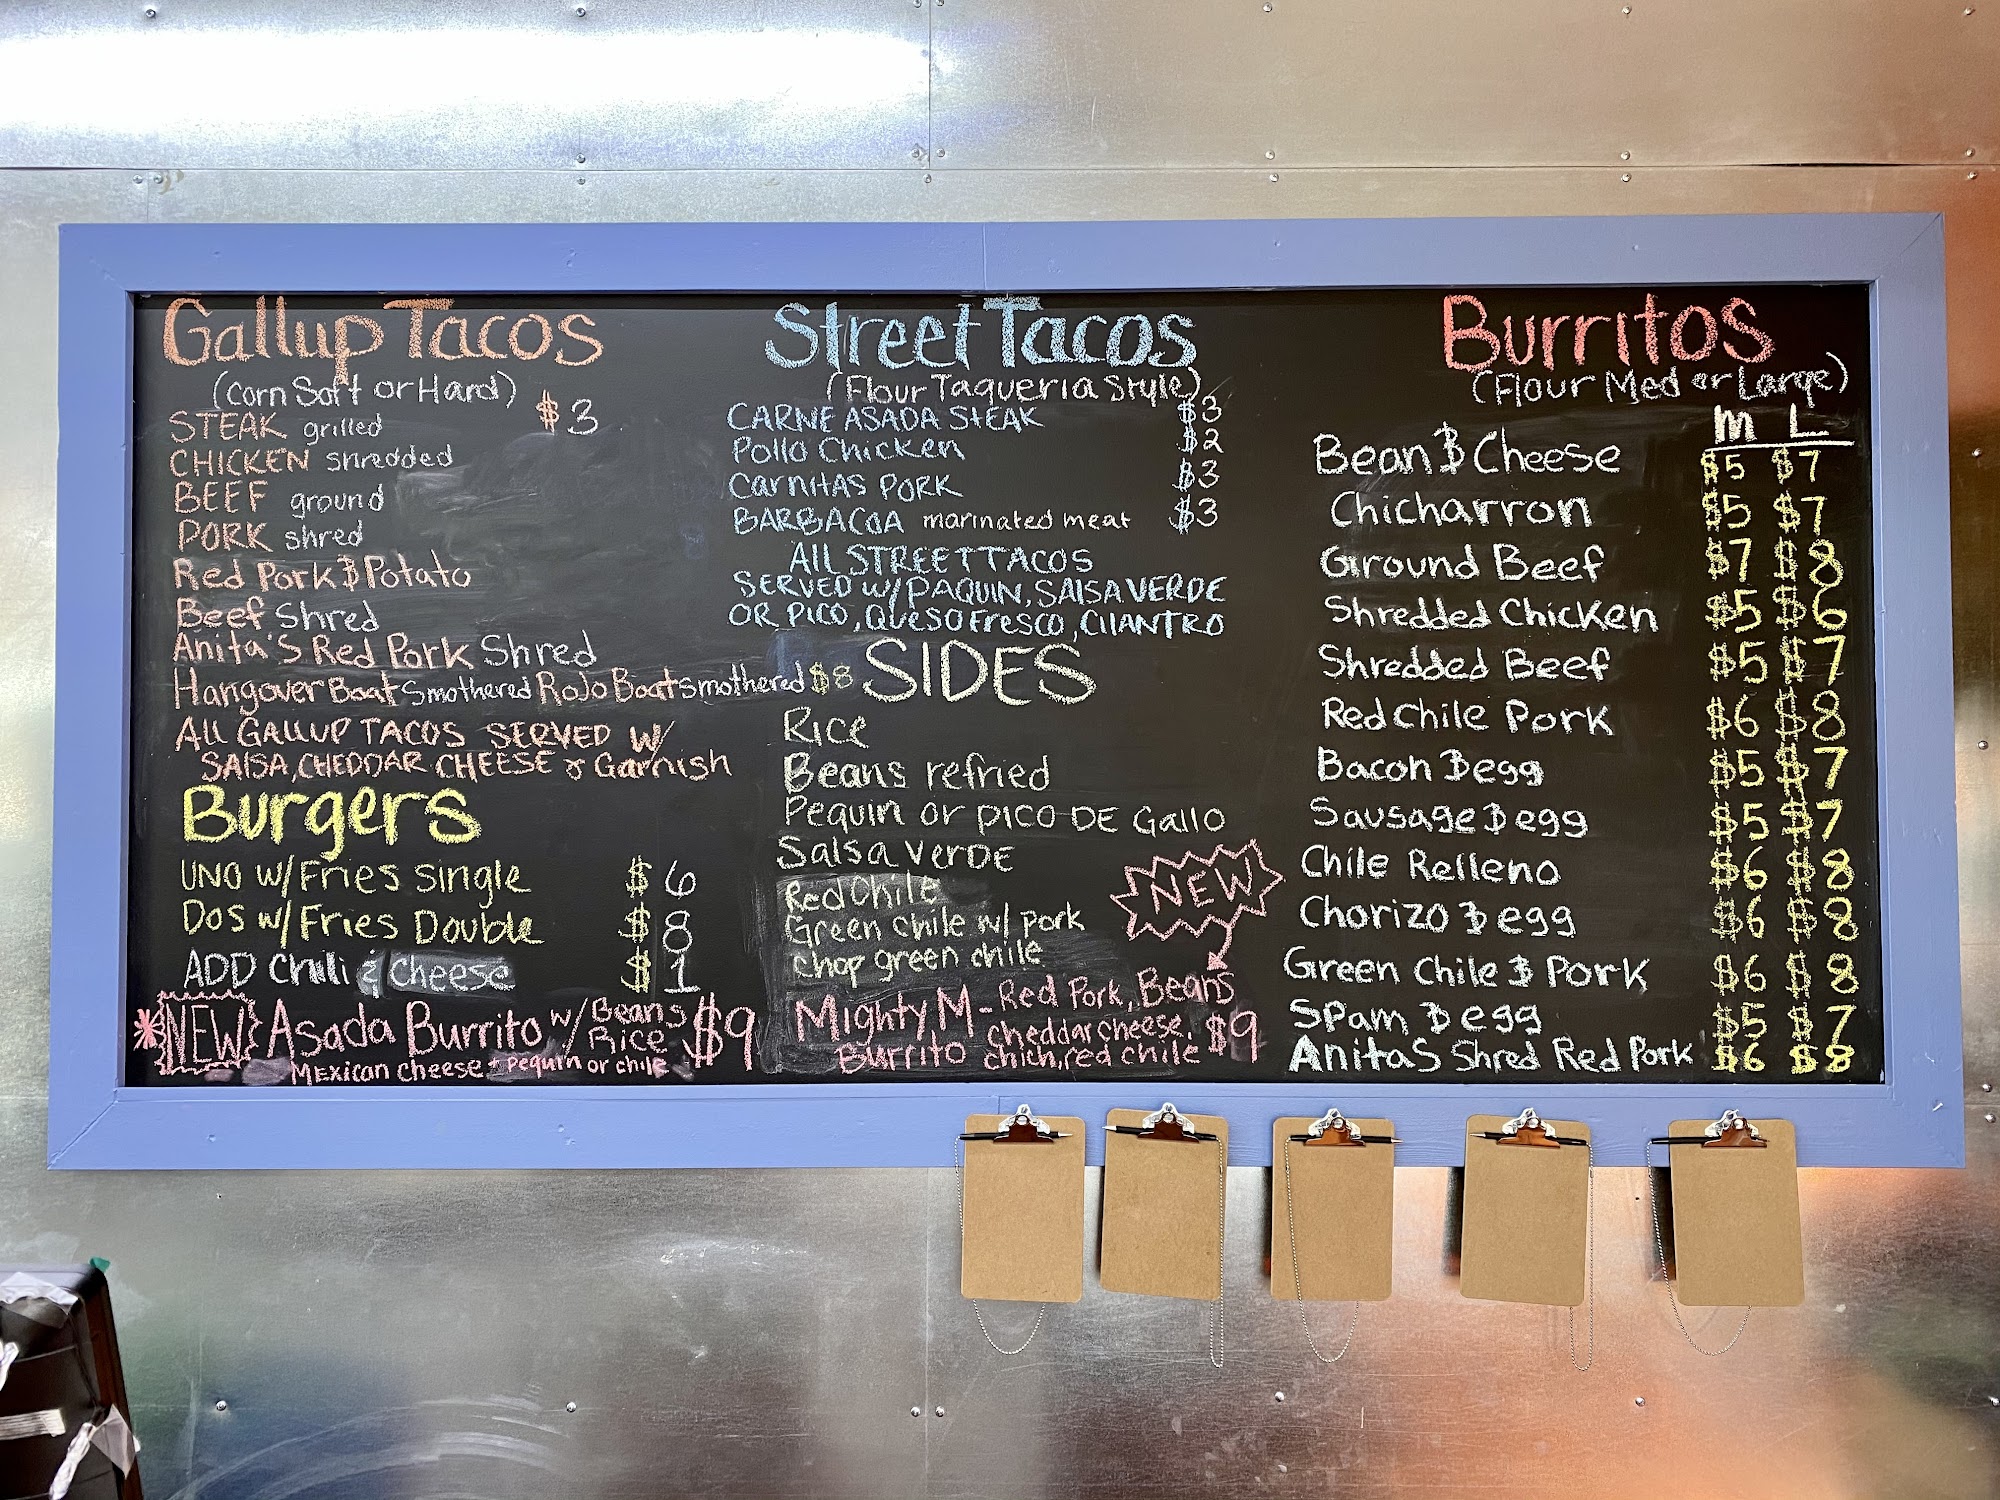 Gallup Tacos
(Corn Soft or Hard)
$3
STEAK grilled
CHICKEN shredded
BEEF ground
PORK shred
Red Pork & Potato
Beef Shred
Anita's Red Pork Shred
Hangover Boat Smothered RoJo Boat smothered $8
All GAllUP TACOS SERVED W/
SAlSA, CHEDDAR CHEESE & Garnish
Burgers
UNO w/Fries single $6
Dos w/Fries Double $8
ADD Chili & cheese $1
*NEW Asada Burrito w/ Beans Rice $9
MExican cheese + pequin or chile
Street Tacos
(Flour Taqueria Style)
CARNE ASADA STEAK $3
Pollo Chicken $2
CarnitAS PORK $3
BARBACOA marinated meat $3
All STREET TACOS
SERVED W/ PAQUIN, SAlSA VERDE
OR PICO, QUESO Fresco, CIlANTRO
SIDES
Rice
Beans refried
Pequin or PICO DE Gallo
Salsa VerDE
Red Chile
Green chile w/ pork
chop green chile
NEW
Mighty M - Red Pork, Beans
Burrito cheddar cheese,
chich, red chile $9
Burritos
(Flour Med or Large)
M L
Bean & Cheese $5 $7
Chicharron $5 $7
Ground Beef $7 $8
Shredded Chicken $5 $6
Shredded Beef $5 $7
Red Chile Pork $6 $8
Bacon & egg $5 $7
Sausage & egg $5 $7
Chile Relleno $6 $8
Chorizo & egg $6 $8
Green Chile & Pork $6 $8
Spam & egg $5 $7
AnitaS Shred Red Pork $6 $8